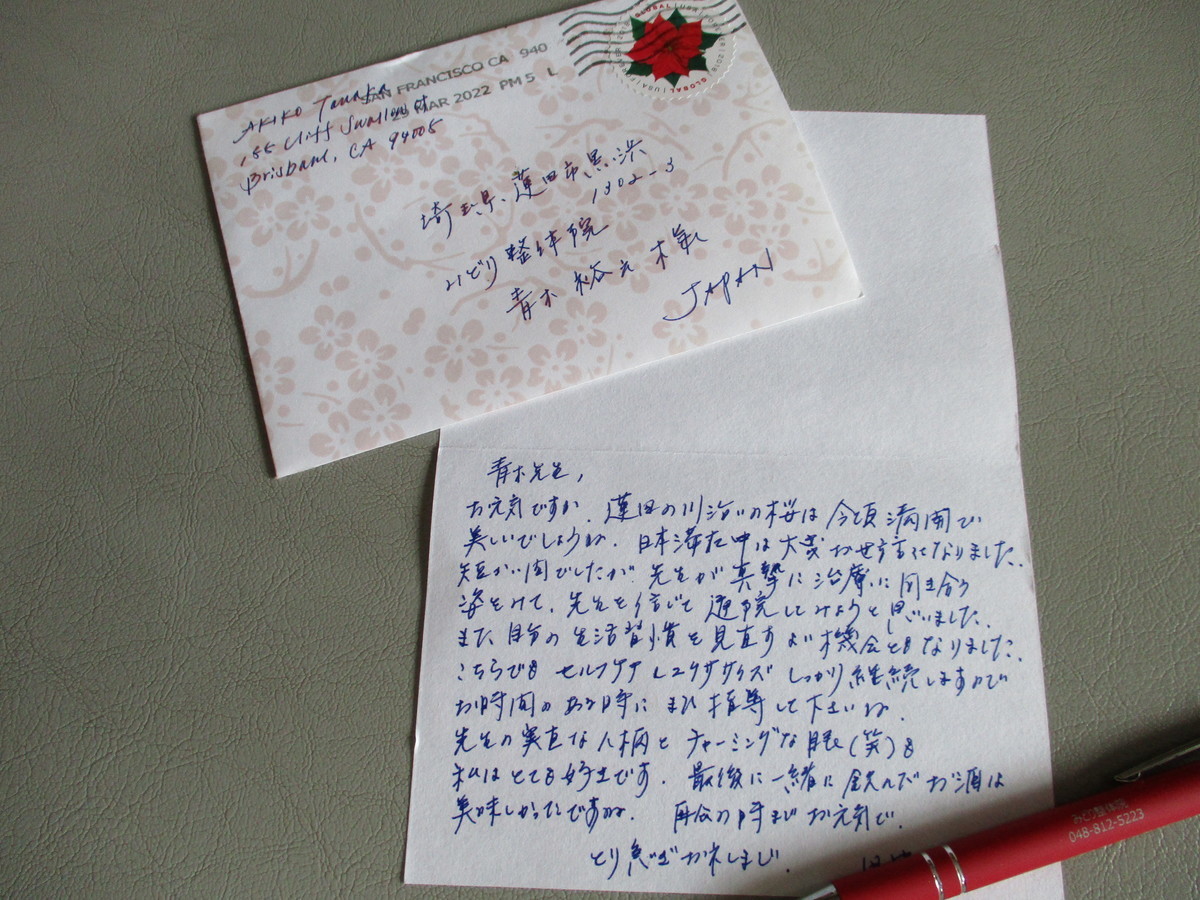 AKIKO Tanaka
155 Cliff Swallow Ct
Brisbane, CA 94005
SAN FRANCISCO CA 940
MAR 2022 PM 5 L
GLOBAL USA
埼玉県蓮田市黒浜
1302-3
みどり整体院
青木 裕之 様
JAPAN
青木先生,
お元気ですか. 蓮田の川沿いの桜は今頃満開で
美しいでしょうね. 日本滞在中は大変お世話になりました.
短かい間でしたが 先生が真摯に治療に向き合う
姿をみて、先生を信じて通院してみようと思いました.
また、自分の生活習慣を見直すよい機会ともなりました.
こちらでも セルフケアとエクササイズ しっかり継続しますので
お時間のある時に また指導して下さいね.
先生の実直な人柄とチャーミングな眼(笑)も
私はとても好きです. 最後に一緒に飲んだお酒は
美味しかったですね. 再会の時までお元気で.
とり急ぎお礼まで.
みどり整体院
048-812-5223